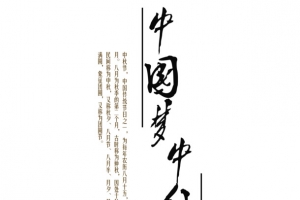 中国梦中
中秋节，中国传统节日之一，为每年农历八月十五，
月，八月为秋季的第二个月，古时称为仲秋，因处
民间称为中秋，又称秋夕、八月节、八月半、月夕、
满圆，象征团圆，又称为团圆节。